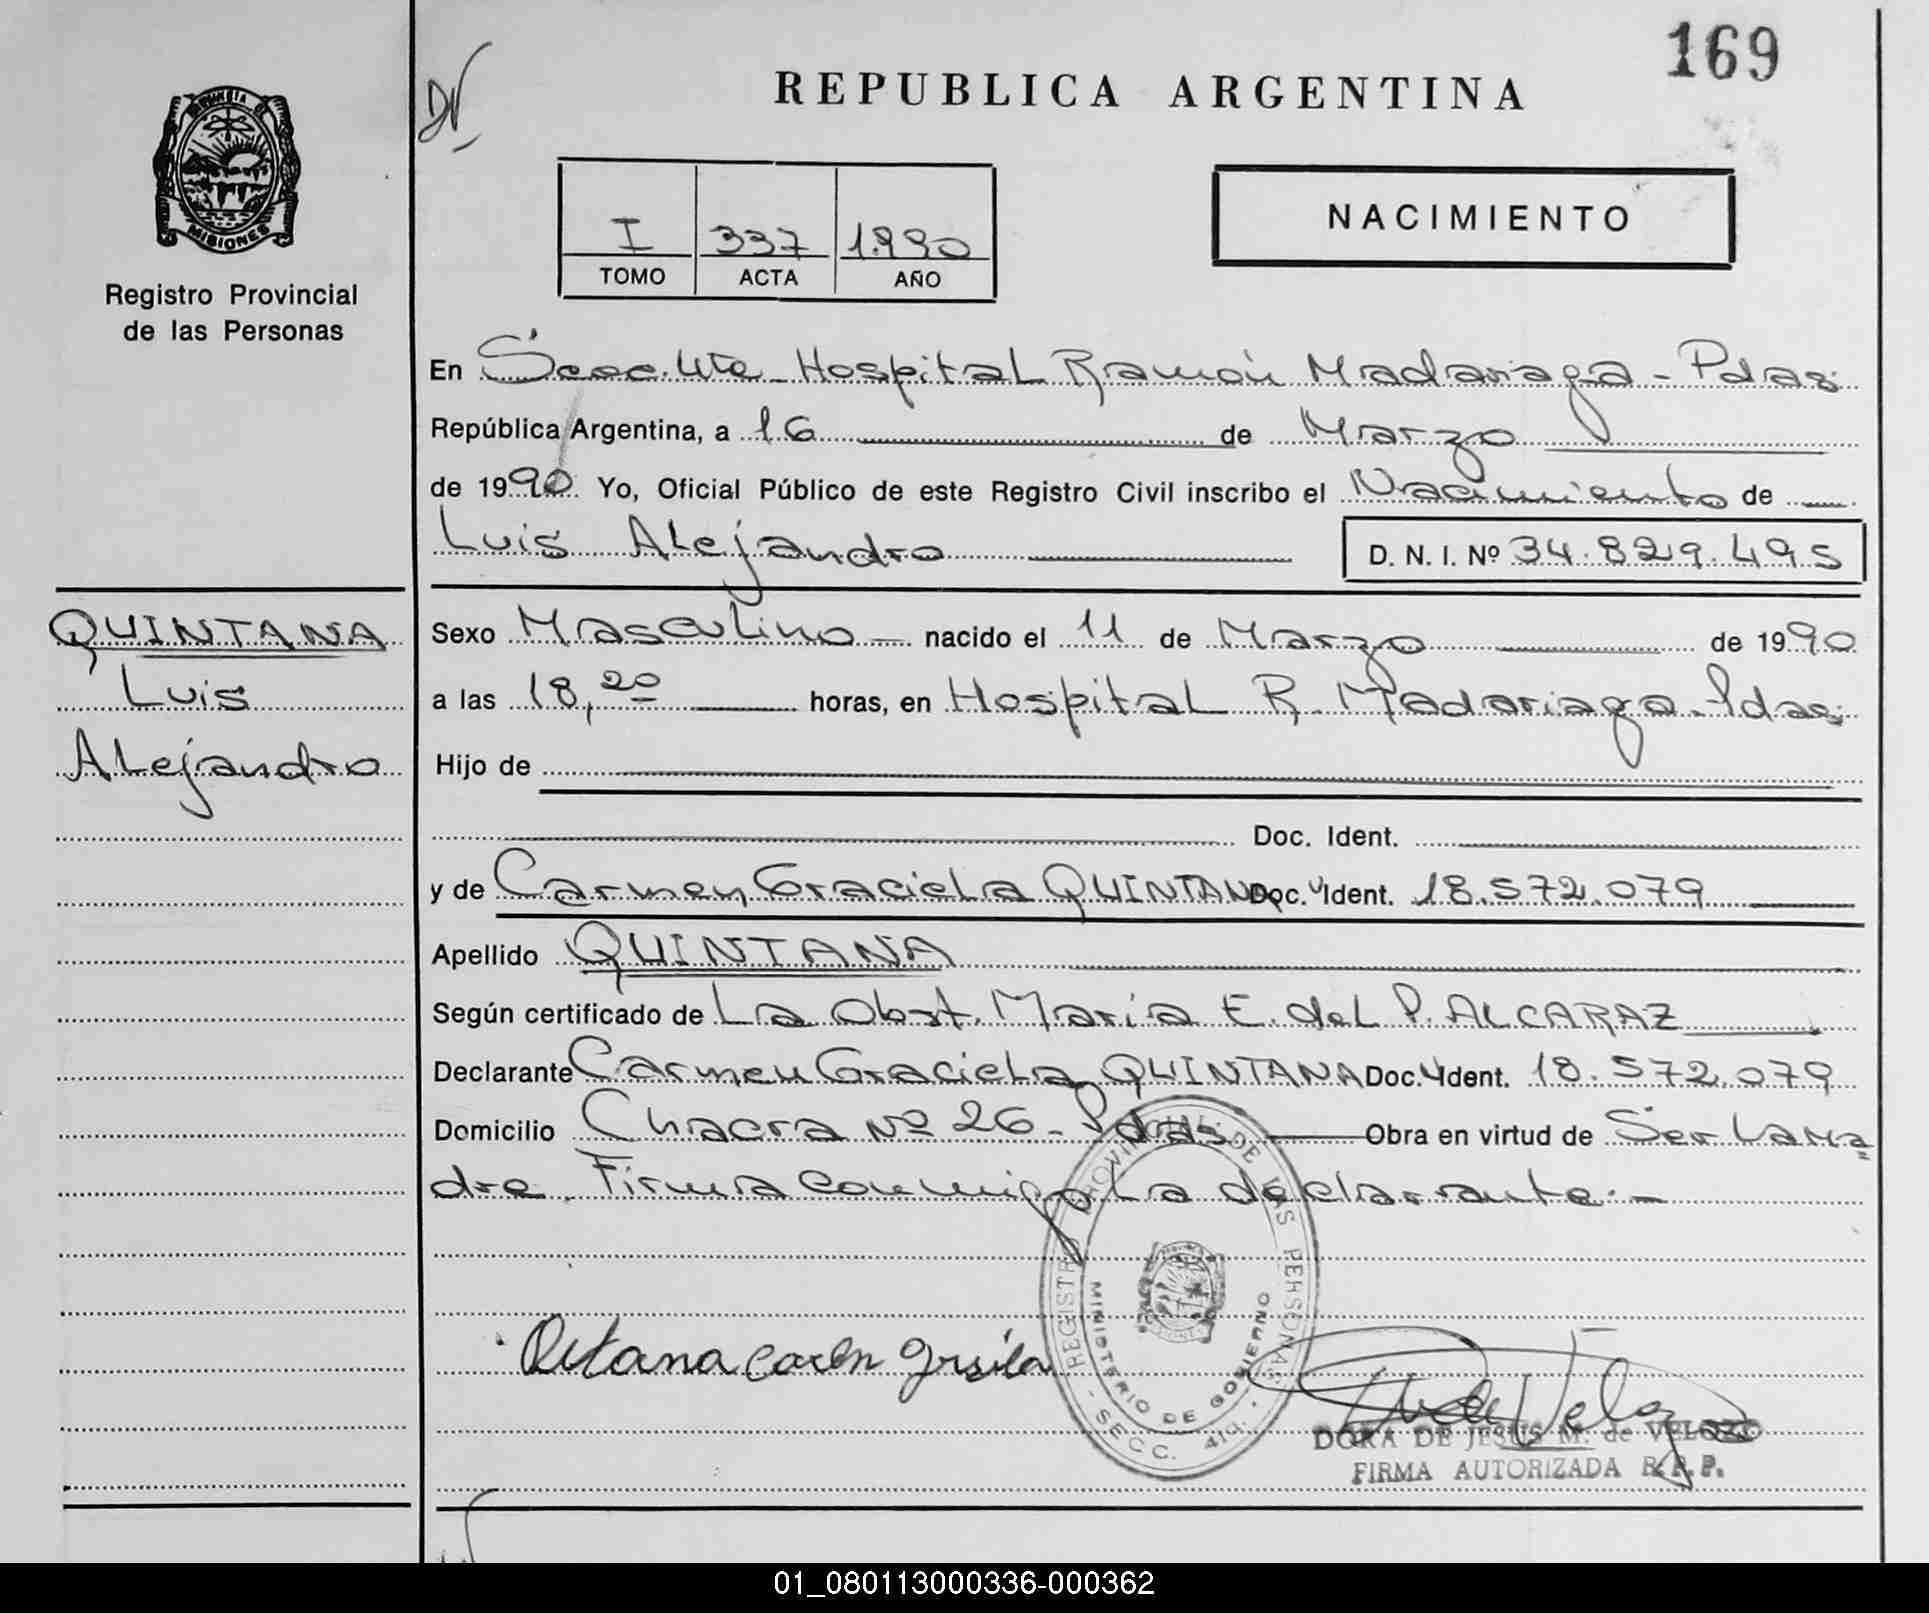 169
REPUBLICA ARGENTINA
NACIMIENTO
I 337 1.990
TOMO ACTA AÑO
PROVINCIA DE
MISIONES
Registro Provincial
de las Personas
En Secc. 4ta - Hospital Ramón Madariaga - Pdas.
República Argentina, a 16 de Marzo
de 1990. Yo, Oficial Público de este Registro Civil inscribo el Nacimiento de
Luis Alejandro D. N. I. Nº 34.829.495
QUINTANA
Luis
Alejandro
Sexo Masculino nacido el 11 de Marzo de 1990
a las 18,20 horas, en Hospital R. Madariaga - Pdas.
Hijo de
Doc. Ident.
y de Carmen Graciela QUINTANA Doc. Ident. 18.572.079
Apellido QUINTANA
Según certificado de La Obst. María E. del P. ALCARAZ
Declarante Carmen Graciela QUINTANA Doc. Ident. 18.572.079
Domicilio Chacra Nº 26 - Pdas Obra en virtud de Ser la ma=
dre. Firma conmigo La declarante.-
REGISTRO PROVINCIAL DE LAS PERSONAS
MINISTERIO DE GOBIERNO
SECC. 4ta.
DORA DE JESUS M. de VELOZO
FIRMA AUTORIZADA R.P.P.
01_080113000336-000362